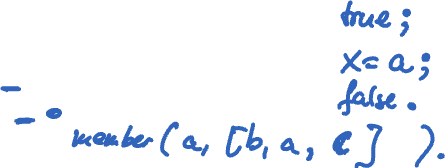 true;
x=a;
false.
member(a, [b, a, c] ).